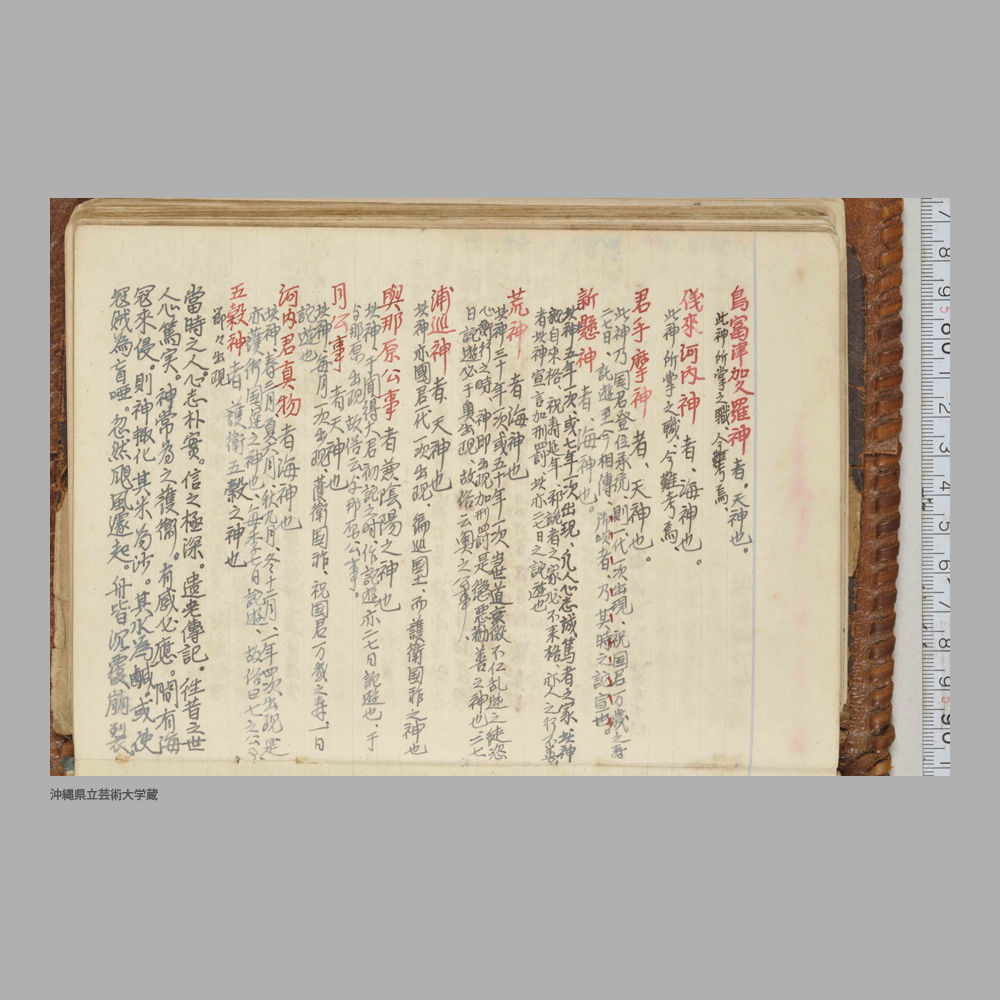 烏富津加久羅神者。天神也。
此神所掌之職、今難考焉、
儀來河内神者、海神也。
此神所掌之職、今難考焉、
君手摩神者、天神也。
此神乃国君登位承統、則一代一次出現、祝国君万歳之寿
二七日、託遊、至今相傳 者、乃其時之託宣也。
新懸神者、海神也。
此神五年一次、或七年一次出現、凡人心志誠篤者之家、此神
親自來格、祝延年、和説者之家必不来格、亦人之行不善
者、此神宣言加刑罰、此亦二七日之託遊也
荒神者海神也
此神三十年一次或五十年一次、当世道衰微不仁乱逆之徒恣
心衡行之時、神即出現加刑罰、是懲悪勧善之神也、二七
日託遊必于奥出現、故俗云奥之公事
浦巡神者、天神也
此神亦國君一代一次出現、徧巡国土、而護衛国祚之神也
與那原公事者兼陰陽之神也
此神、于聞得大君初託之時、作託遊、亦二七日託遊也、于
与那原出現、故俗云与那原公事。
月公事者天神也
此神、每月一次出現、護衛国祚、祝国君万歳之寿、一日
託遊也
河内君真物者海神也
此神、春三月、夏六月、秋九月、冬十二月、一年四次、出現、是
亦護衛国運之神也、每季七日託遊、故俗曰七之公事
五穀神者護衛五穀之神也
節々出現
當時之人心志朴實。信之極深。遺老傳記。往昔之世
人心篤実。神常為之護衛。有感必應。間有海
冦來侵。則神輙化其米為沙。其水為鹹。或使
冦賊為盲唖。忽然颶風遽起。舟皆沉覆崩裂。
沖縄県立芸術大学蔵